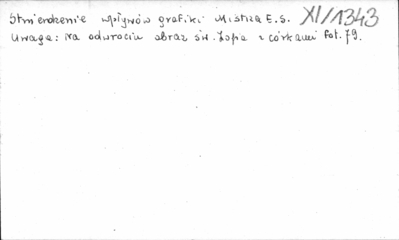 Stwierdzenie wpływów grafiki Mistrza E.S. XI/1343
Uwaga: Na odwrociu obraz św. Zofia z córkami fot. 79.